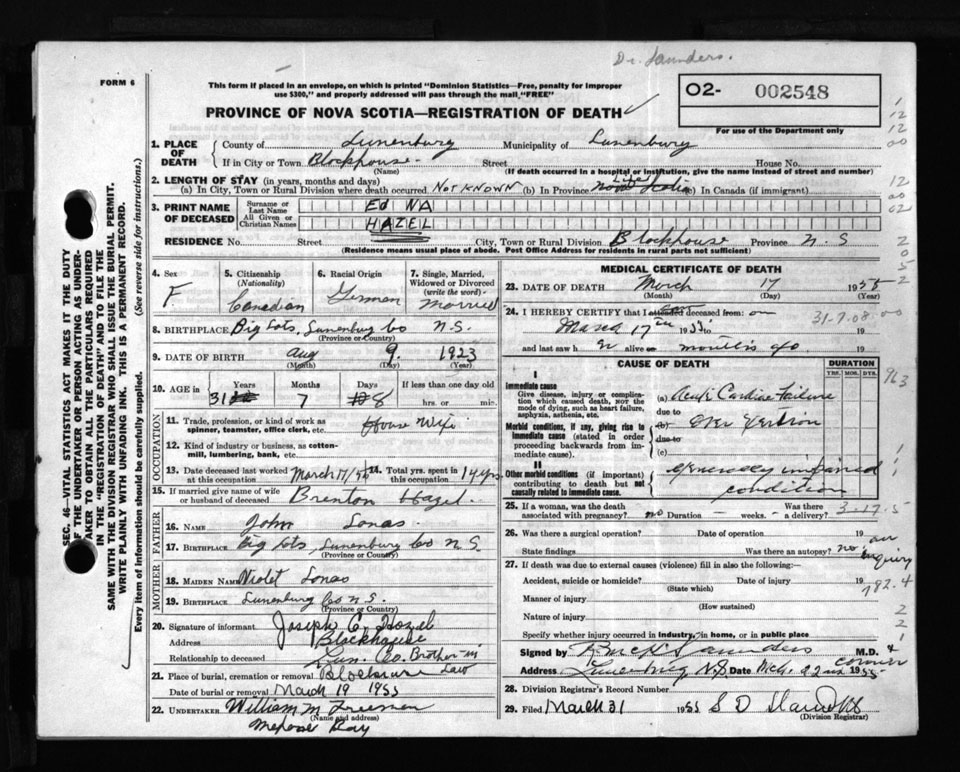 Dr. Saunders.
FORM 6
This form if placed in an envelope, on which is printed "Dominion Statistics—Free, penalty for improper
use $300," and properly addressed will pass through the mail "FREE"
O2- 002548
PROVINCE OF NOVA SCOTIA—REGISTRATION OF DEATH
For use of the Department only
1. PLACE OF DEATH
County of Lunenburg Municipality of Lunenburg
If in City or Town Blockhouse Street House No.
(Name) (If death occurred in a hospital or institution, give the name instead of street and number)
2. LENGTH OF STAY (in years, months and days)
(a) In City, Town or Rural Division where death occurred Not Known (b) In Province Life Nova Scotia (c) In Canada (if immigrant)
3. PRINT NAME OF DECEASED
Surname or Last Name EDNA
All Given or Christian Names HAZEL
RESIDENCE No. Street City, Town or Rural Division Blockhouse Province N.S
(Residence means usual place of abode. Post Office Address for residents in rural parts not sufficient)
4. Sex F
5. Citizenship (Nationality) Canadian
6. Racial Origin German
7. Single, Married, Widowed or Divorced (write the word) Married
8. BIRTHPLACE Big Lots, Lunenburg Co N.S.
(Province or Country)
9. DATE OF BIRTH Aug 9. 1923
(Month) (Day) (Year)
10. AGE in Years Months Days If less than one day old
31 7 8 hrs. or min.
OCCUPATION
11. Trade, profession, or kind of work as spinner, teamster, office clerk, etc. House Wife
12. Kind of industry or business, as cotton-mill, lumbering, bank, etc.
13. Date deceased last worked at this occupation March 17/55
14. Total yrs. spent in this occupation 14 yrs.
15. If married give name of wife or husband of deceased Brenton Hazel
FATHER
16. NAME John Lonas
17. BIRTHPLACE Big Lots, Lunenburg Co N.S.
(Province or Country)
MOTHER
18. MAIDEN NAME Violet Lonas
19. BIRTHPLACE Lunenburg Co N.S.
(Province or Country)
20. Signature of informant Joseph C. Hazel
Address Blockhouse
Lun. Co.
Relationship to deceased Brother in Law
21. Place of burial, cremation or removal Blockhouse
Date of burial or removal March 19 1955
22. UNDERTAKER William M Freeman
(Name and address)
Mahone Bay
MEDICAL CERTIFICATE OF DEATH
23. DATE OF DEATH March 17 1955
(Month) (Day) (Year)
24. I HEREBY CERTIFY that I attended deceased from: on
March 17th 1955 to 19
31-7-08
and last saw h er alive on months ago 19
CAUSE OF DEATH
DURATION
YRS. MOS. DYS.
I
Immediate cause
Give disease, injury or complication which caused death, not the mode of dying, such as heart failure, asphyxia, asthenia, etc.
(a) Acute Cardiac Failure
due to
Morbid conditions, if any, giving rise to immediate cause (stated in order proceeding backwards from immediate cause).
(b) Over Exertion
due to
(c)
II
Other morbid conditions (if important) contributing to death but not causally related to immediate cause.
Generally impaired
condition
25. If a woman, was the death associated with pregnancy? no Duration — weeks. Was there a delivery?
26. Was there a surgical operation? Date of operation 19
State findings Was there an autopsy? no
an
inquiry
27. If death was due to external causes (violence) fill in also the following:—
Accident, suicide or homicide? Date of injury 19
(State which)
782.4
Manner of injury
(How sustained)
Nature of injury
Specify whether injury occurred in industry, in home, or in public place
Signed by R McK Saunders M.D. &
Coroner
Address Lunenburg N.S. Date Mch. 22nd 1955
28. Division Registrar's Record Number
29. Filed March 31 1955
(Division Registrar)
SEC. 46—VITAL STATISTICS ACT MAKES IT THE DUTY
OF THE UNDERTAKER OR PERSON ACTING AS UNDERTAKER TO OBTAIN ALL THE PARTICULARS REQUIRED
IN THE "REGISTRATION OF DEATH" AND TO FILE THE
SAME WITH THE DIVISION REGISTRAR WHO SHALL ISSUE THE BURIAL PERMIT.
WRITE PLAINLY WITH UNFADING INK. THIS IS A PERMANENT RECORD.
Every item of information should be carefully supplied. (See reverse side for instructions.)